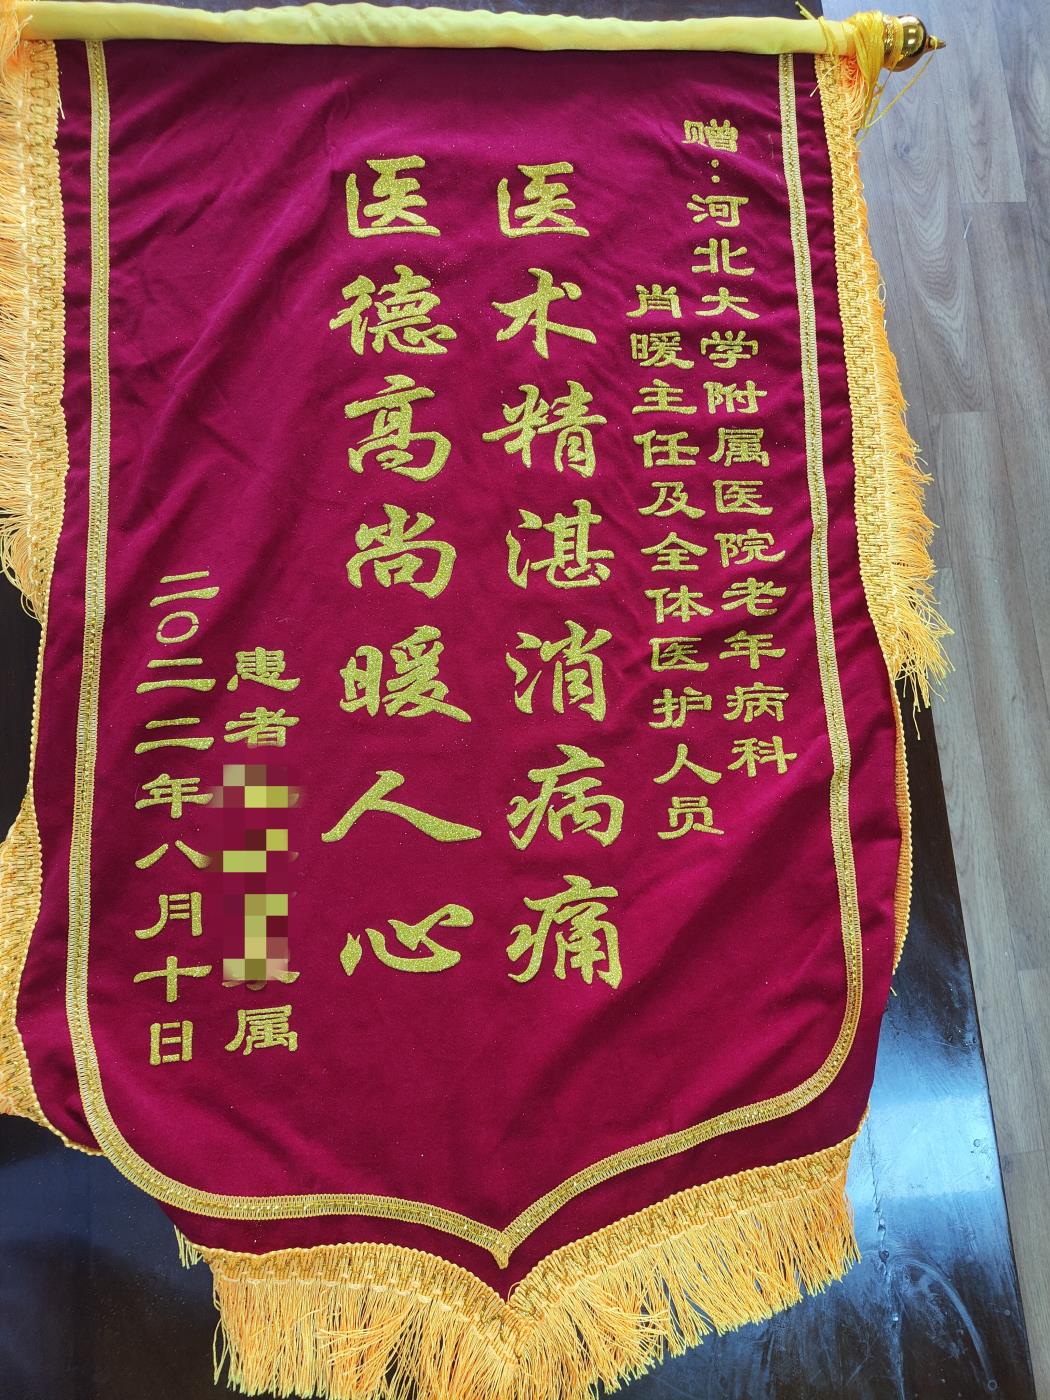 赠:河北大学附属医院老年病科
肖暖主任及全体医护人员
医术精湛消病痛
医德高尚暖人心
患者
属
二〇二二年八月十日